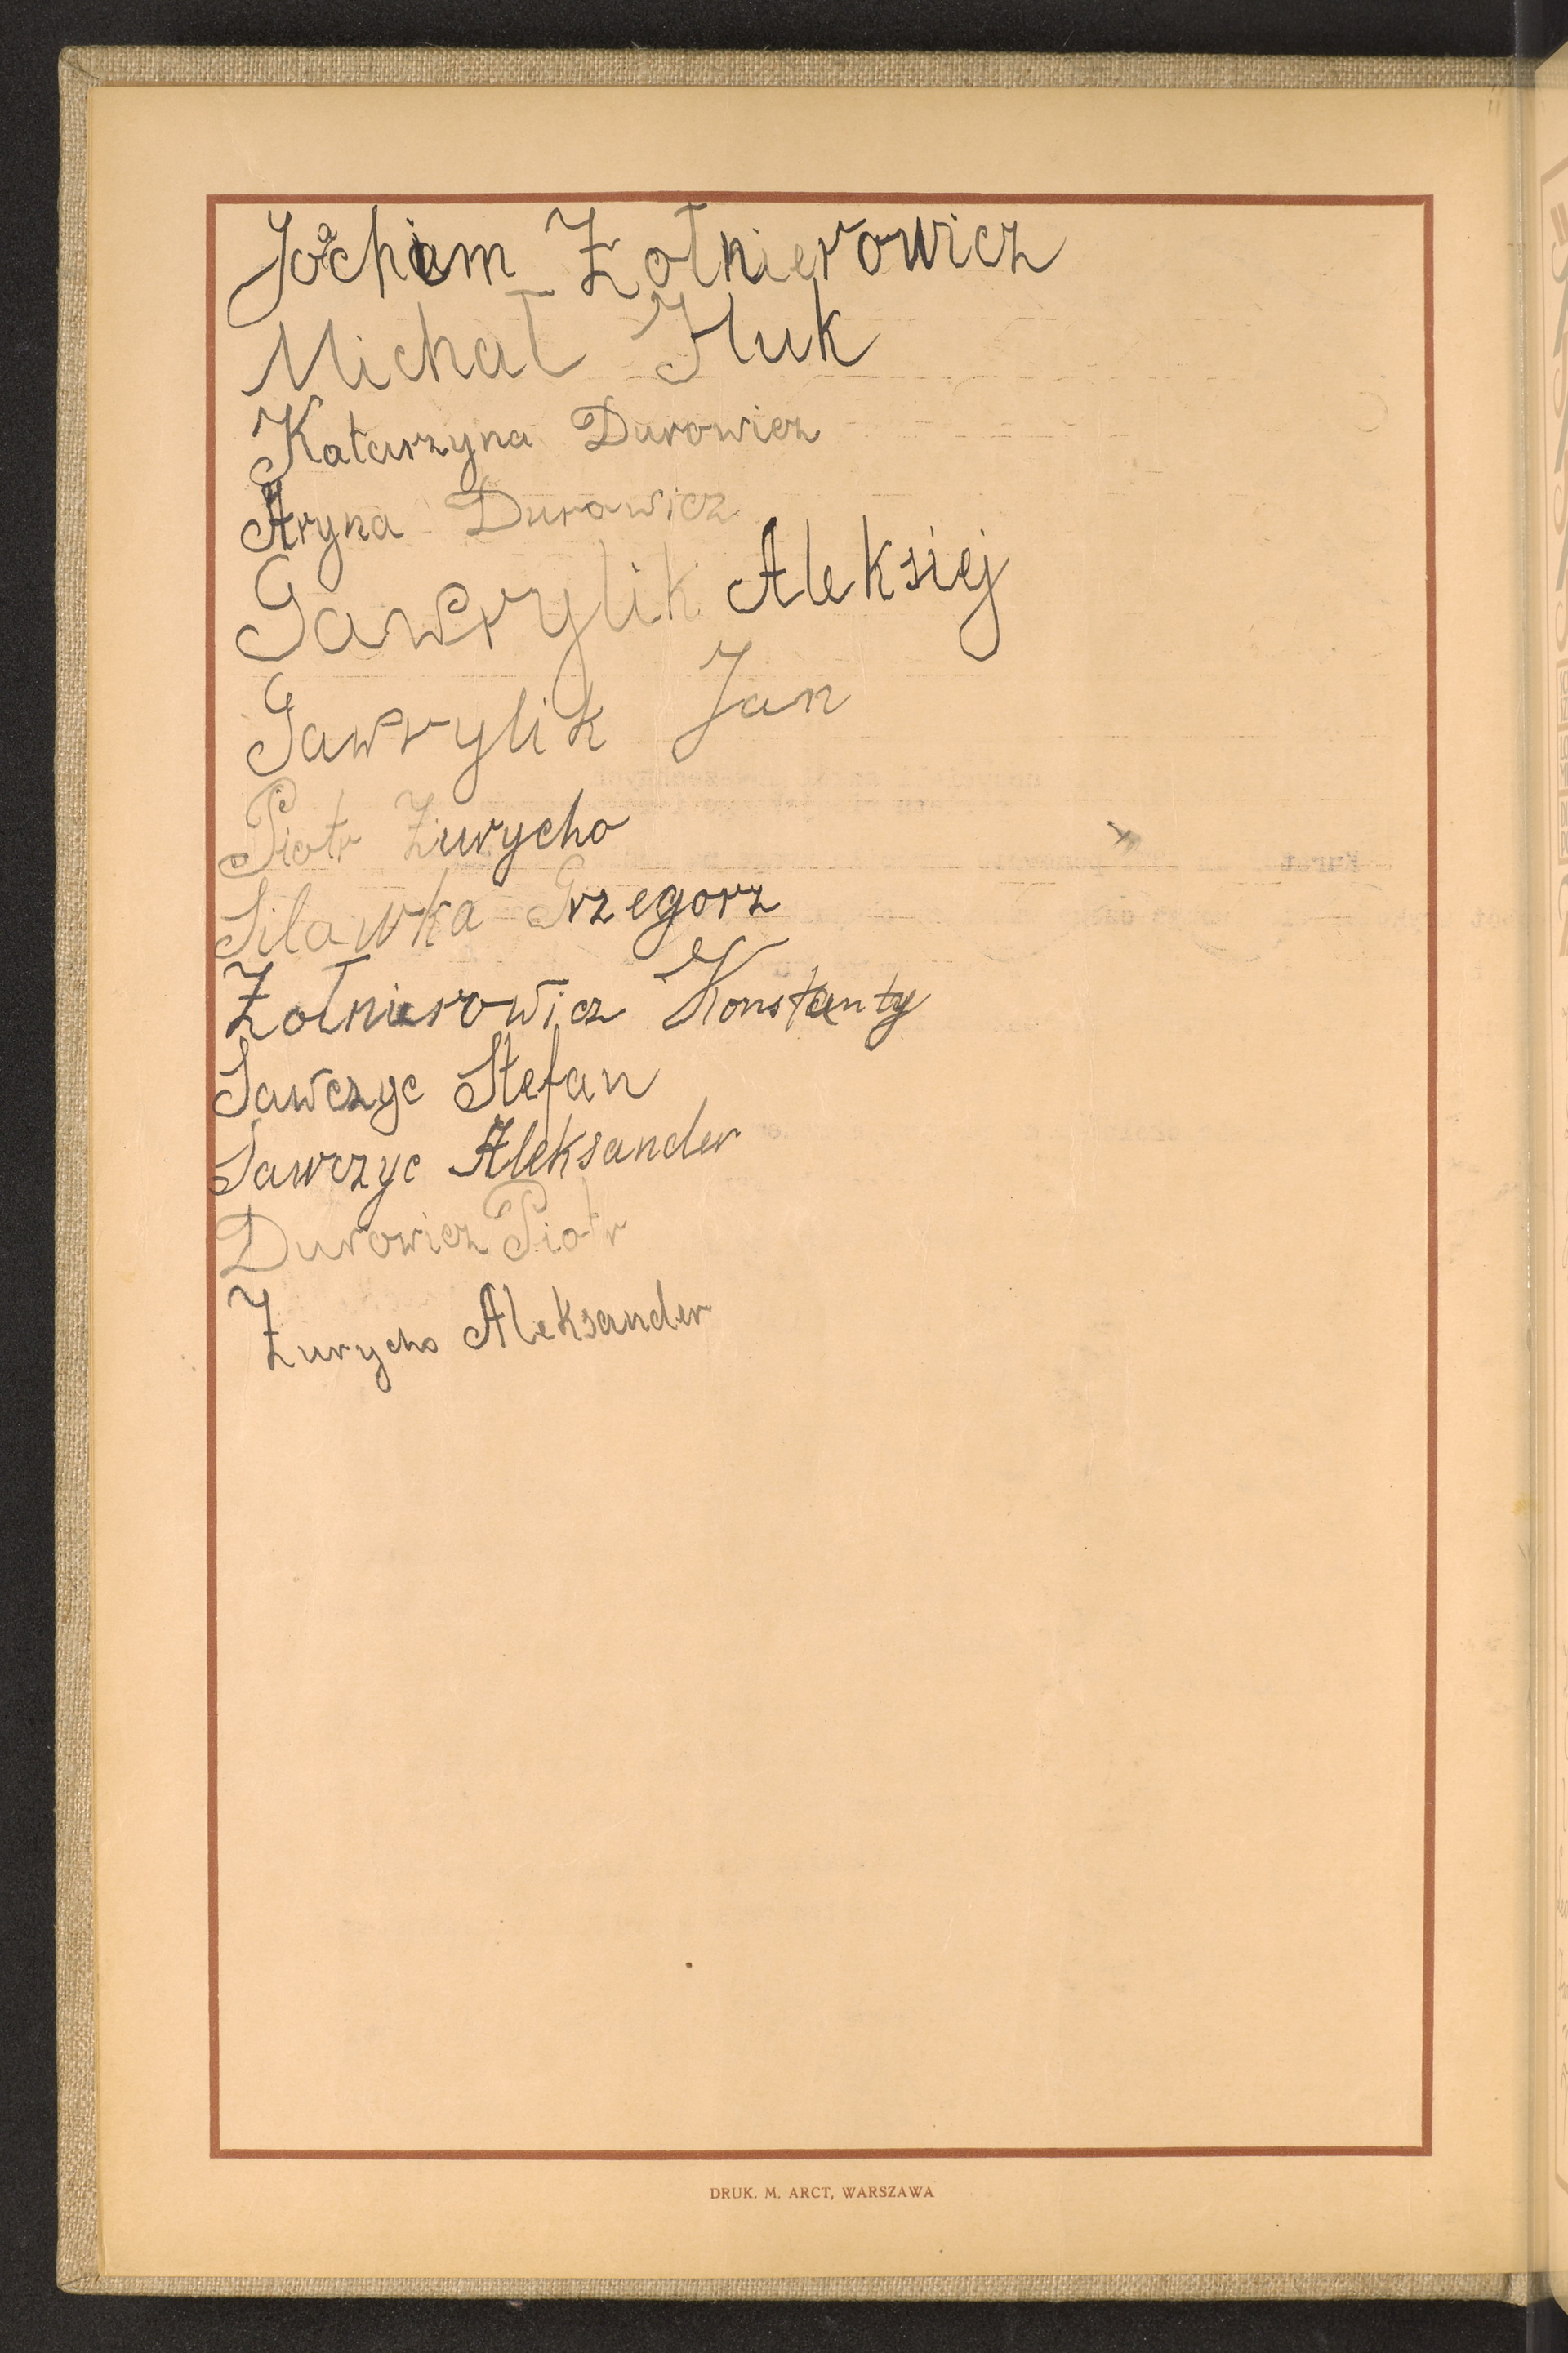 Joachim Żołnierowicz
Michał Huk
Katarzyna Durowicz
Aryna Durowicz
Gawrylik Aleksiej
Gawrylik Jan
Piotr Żurycho
Silawka Grzegorz
Żołnierowicz Konstanty
Sawczyc Stefan
Sawczyc Aleksander
Durowicz Piotr
Żurycho Aleksander
DRUK. M. ARCT, WARSZAWA